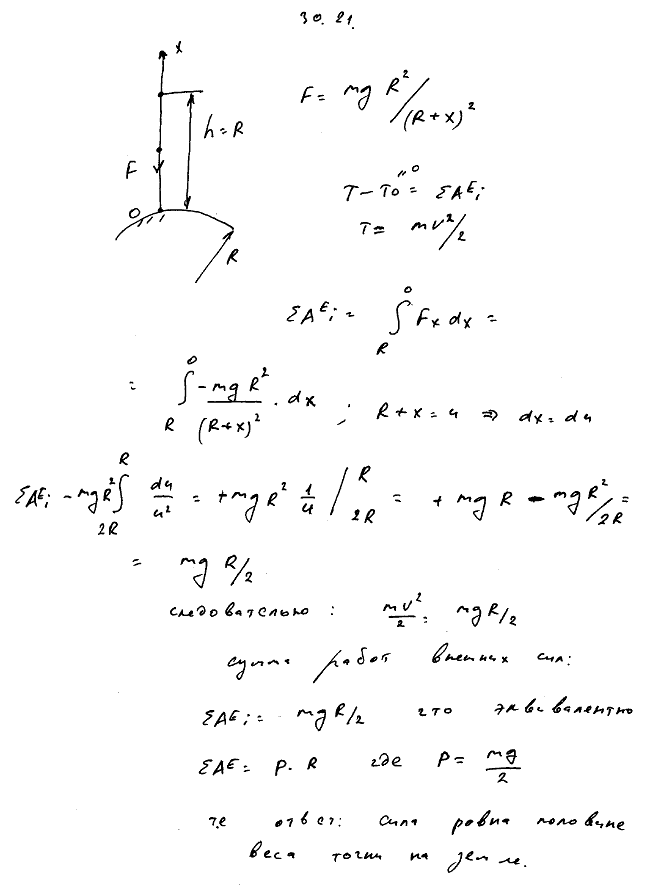 30.21.
x
F = mg R²/(R+x)²
h=R
F
O
R
T − T₀ "⁰ = ΣAᴱᵢ
T = mv²/2
ΣAᴱᵢ = ∫_R^0 Fx dx =
= ∫_R^0 −mg R²/(R+x)² · dx ; R+x=u ⇒ dx=du
ΣAᴱᵢ − mgR² ∫_2R^R du/u² = +mg R² 1/u |_2R^R = + mg R − mg R²/2R =
= mg R/2
следовательно : mv²/2 = mg R/2
сумма работ внешних сил:
ΣAᴱᵢ = mg R/2 что эквивалентно
ΣAᴱ = P · R где P = mg/2
т.е ответ: сила равна половине
веса точки на земле.